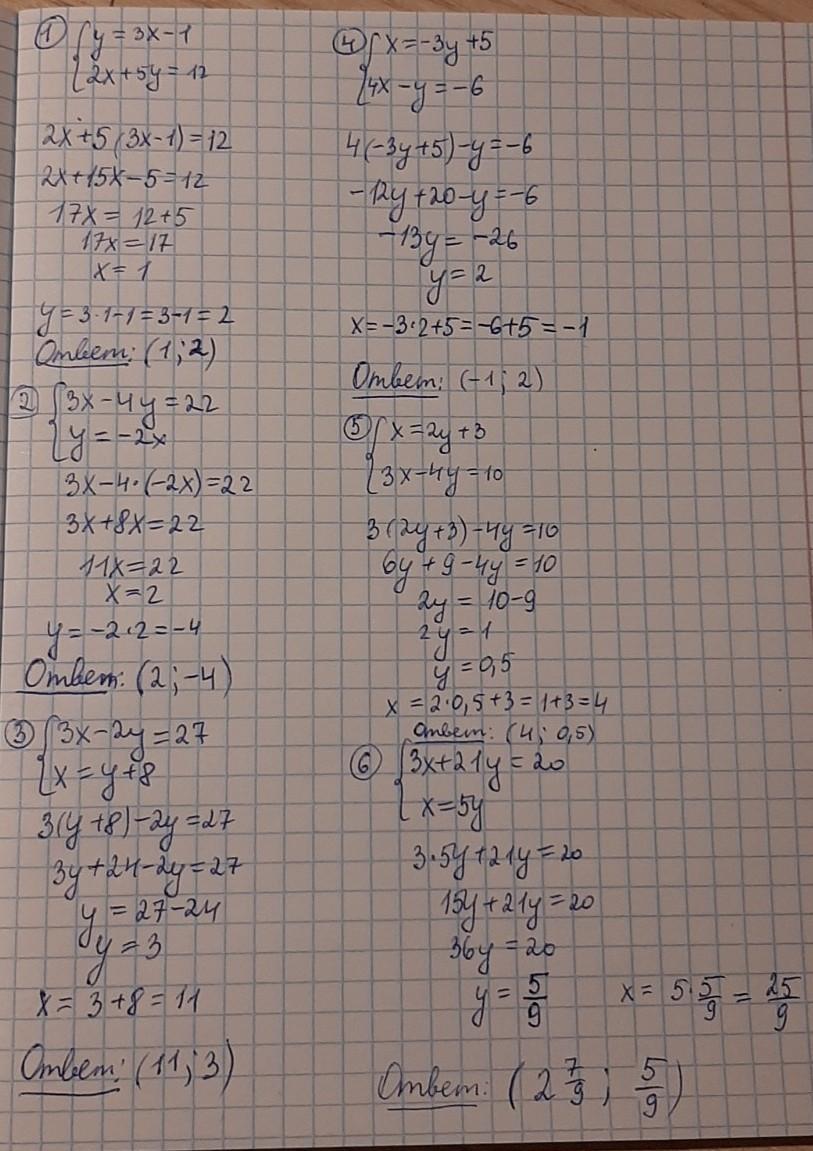 ① { y = 3x - 1
{ 2x + 5y = 12
2x + 5(3x - 1) = 12
2x + 15x - 5 = 12
17x = 12 + 5
17x = 17
x = 1
y = 3·1 - 1 = 3 - 1 = 2
Ответ: (1; 2)
② { 3x - 4y = 22
{ y = -2x
3x - 4·(-2x) = 22
3x + 8x = 22
11x = 22
x = 2
y = -2·2 = -4
Ответ: (2; -4)
③ { 3x - 2y = 27
{ x = y + 8
3(y + 8) - 2y = 27
3y + 24 - 2y = 27
y = 27 - 24
y = 3
x = 3 + 8 = 11
Ответ: (11; 3)
④ { x = -3y + 5
{ 4x - y = -6
4(-3y + 5) - y = -6
-12y + 20 - y = -6
-13y = -26
y = 2
x = -3·2 + 5 = -6 + 5 = -1
Ответ: (-1; 2)
⑤ { x = 2y + 3
{ 3x - 4y = 10
3(2y + 3) - 4y = 10
6y + 9 - 4y = 10
2y = 10 - 9
2y = 1
y = 0,5
x = 2·0,5 + 3 = 1 + 3 = 4
Ответ: (4; 0,5)
⑥ { 3x + 21y = 20
{ x = 5y
3·5y + 21y = 20
15y + 21y = 20
36y = 20
y = 5/9 x = 5·5/9 = 25/9
Ответ: (2 7/9; 5/9)